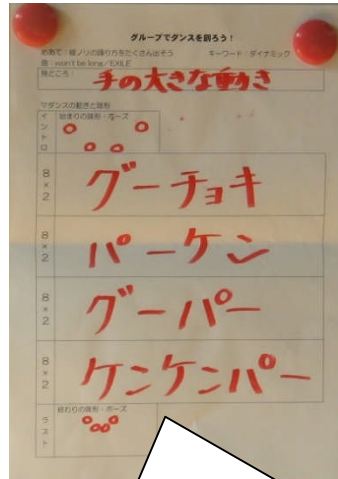 グループでダンスを創ろう！
めあて：縦ノリの踊り方をたくさん出そう　キーワード：ダイナミック
曲：won't be long／EXILE
見どころ：手の大きな動き
▽ダンスの動きと隊形
イントロ　始まりの隊形・ポーズ
8×2　グーチョキ
8×2　パーケン
8×2　グーパー
8×2　ケンケンパー
ラスト　終わりの隊形・ポーズ